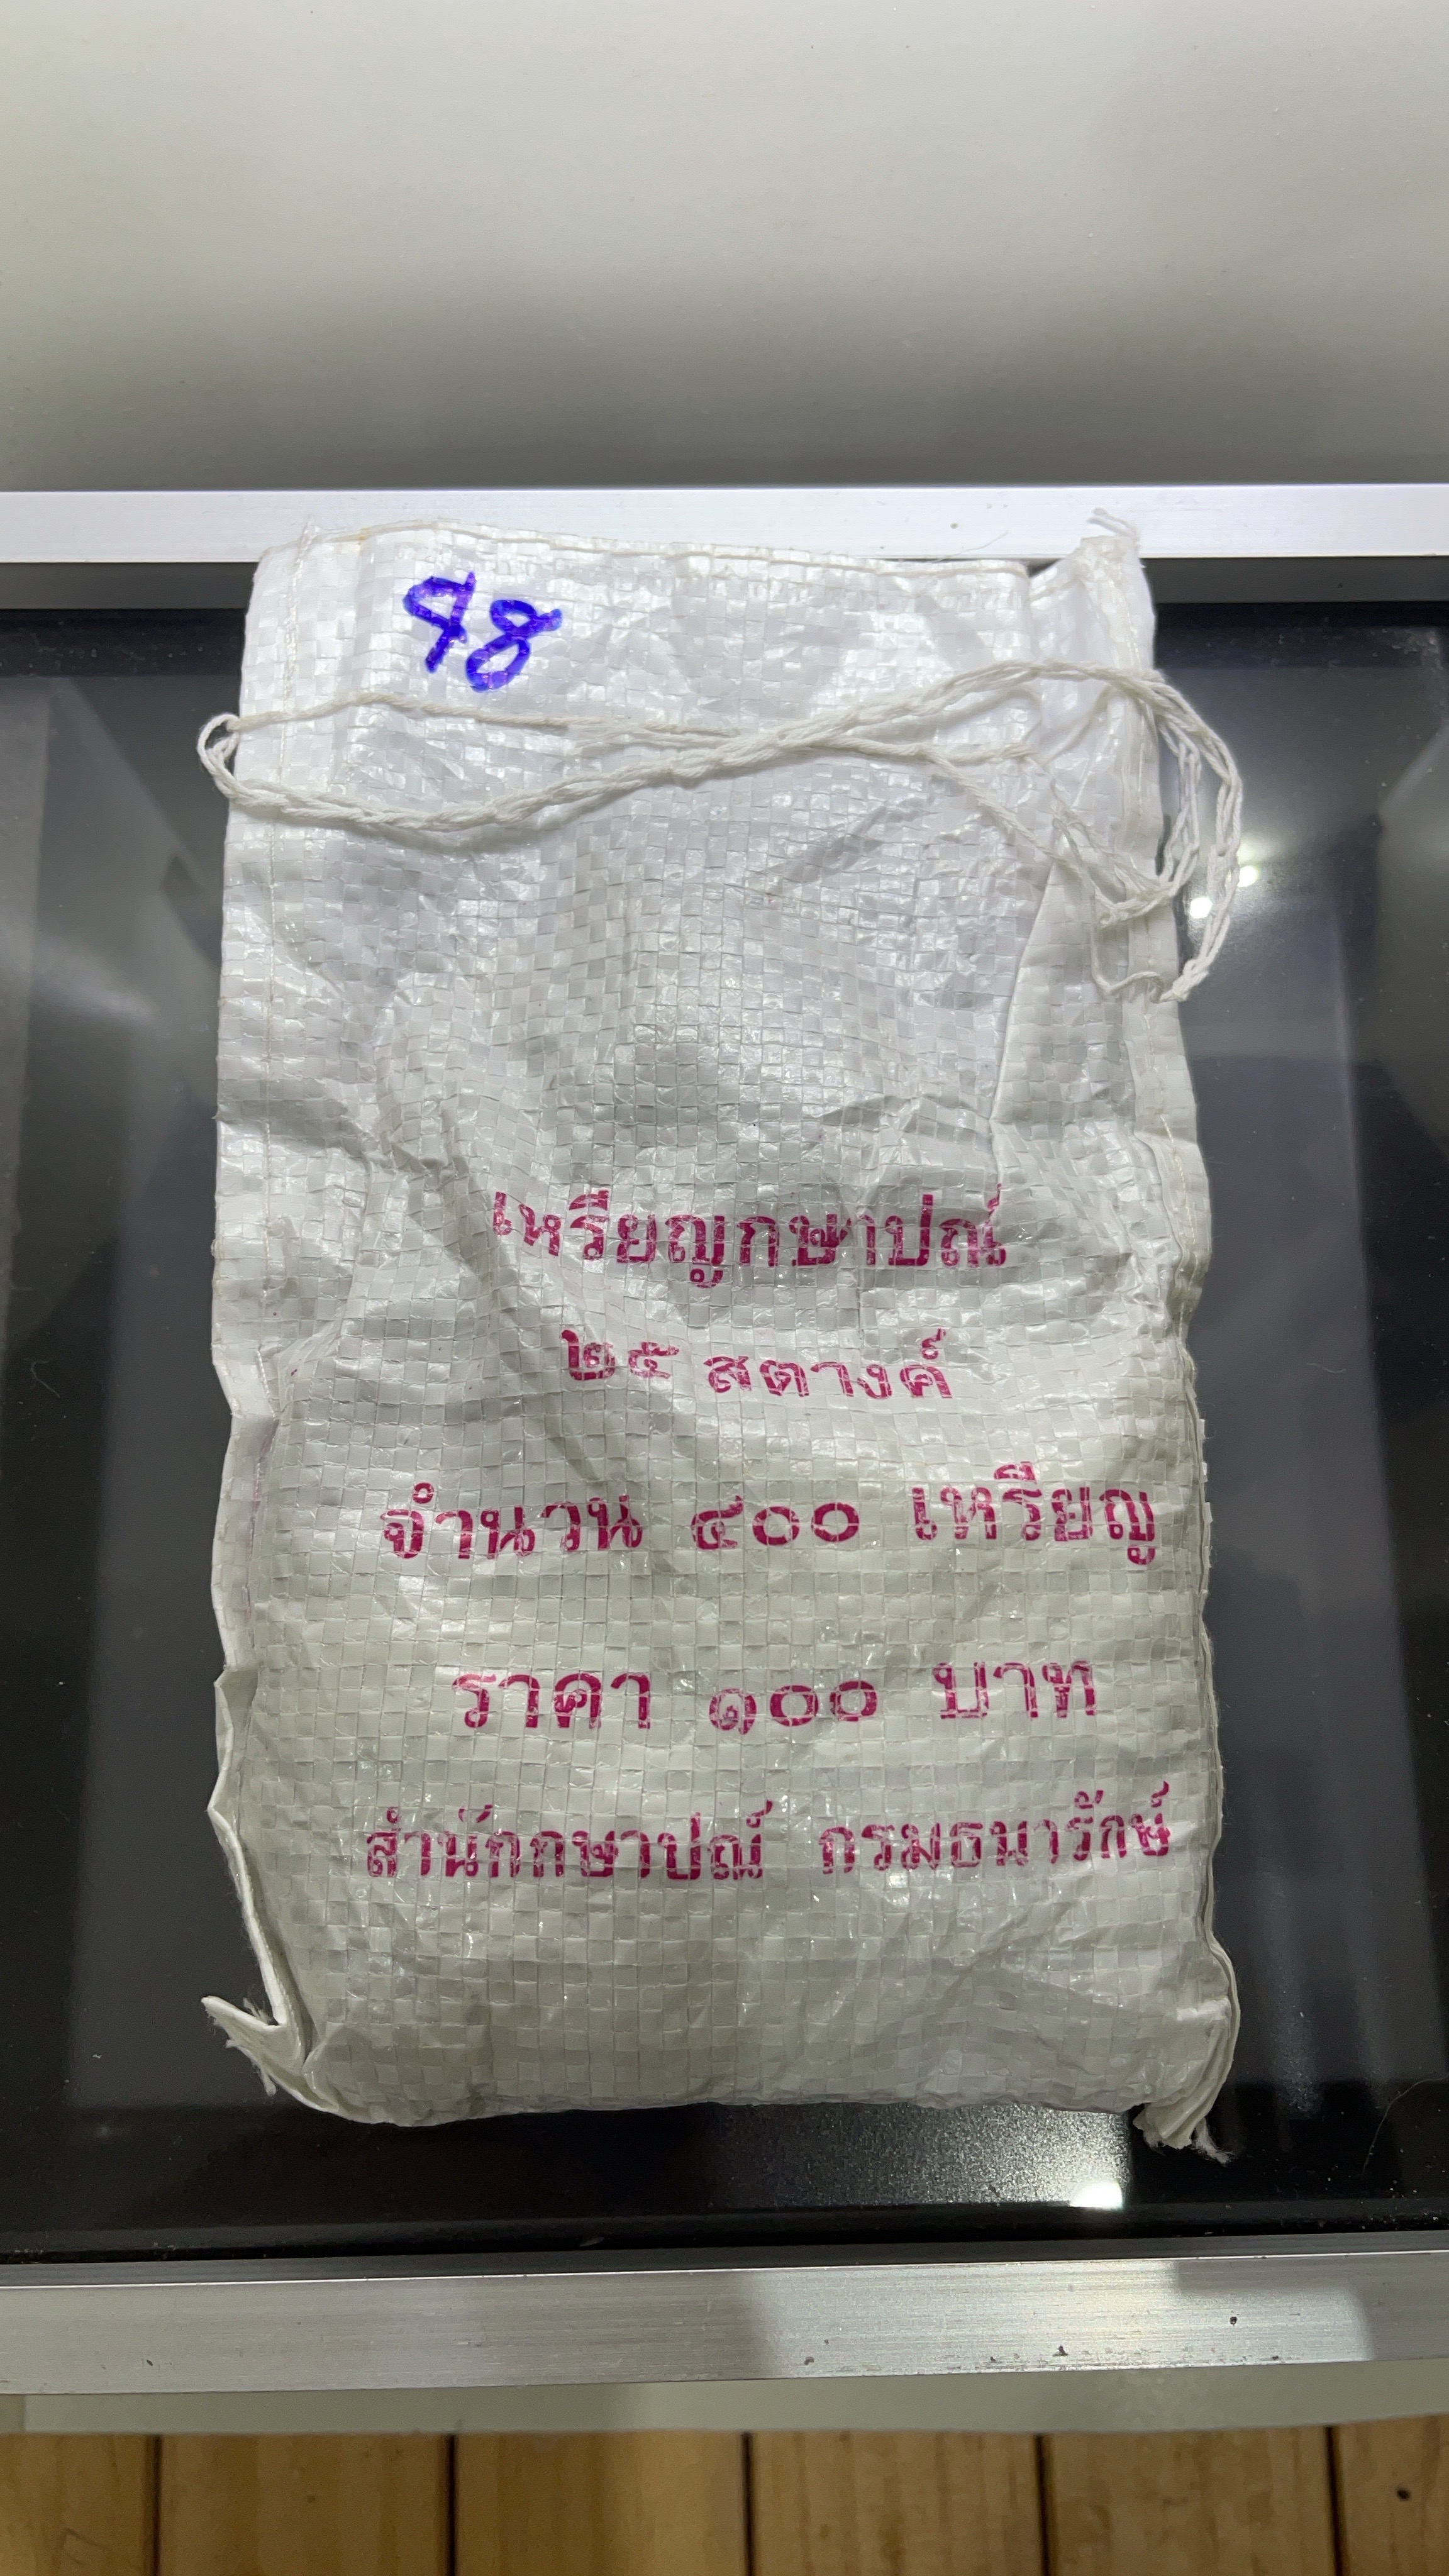 98
เหรียญกษาปณ์
๒๕ สตางค์
จำนวน ๔๐๐ เหรียญ
ราคา ๑๐๐ บาท
สำนักกษาปณ์ กรมธนารักษ์